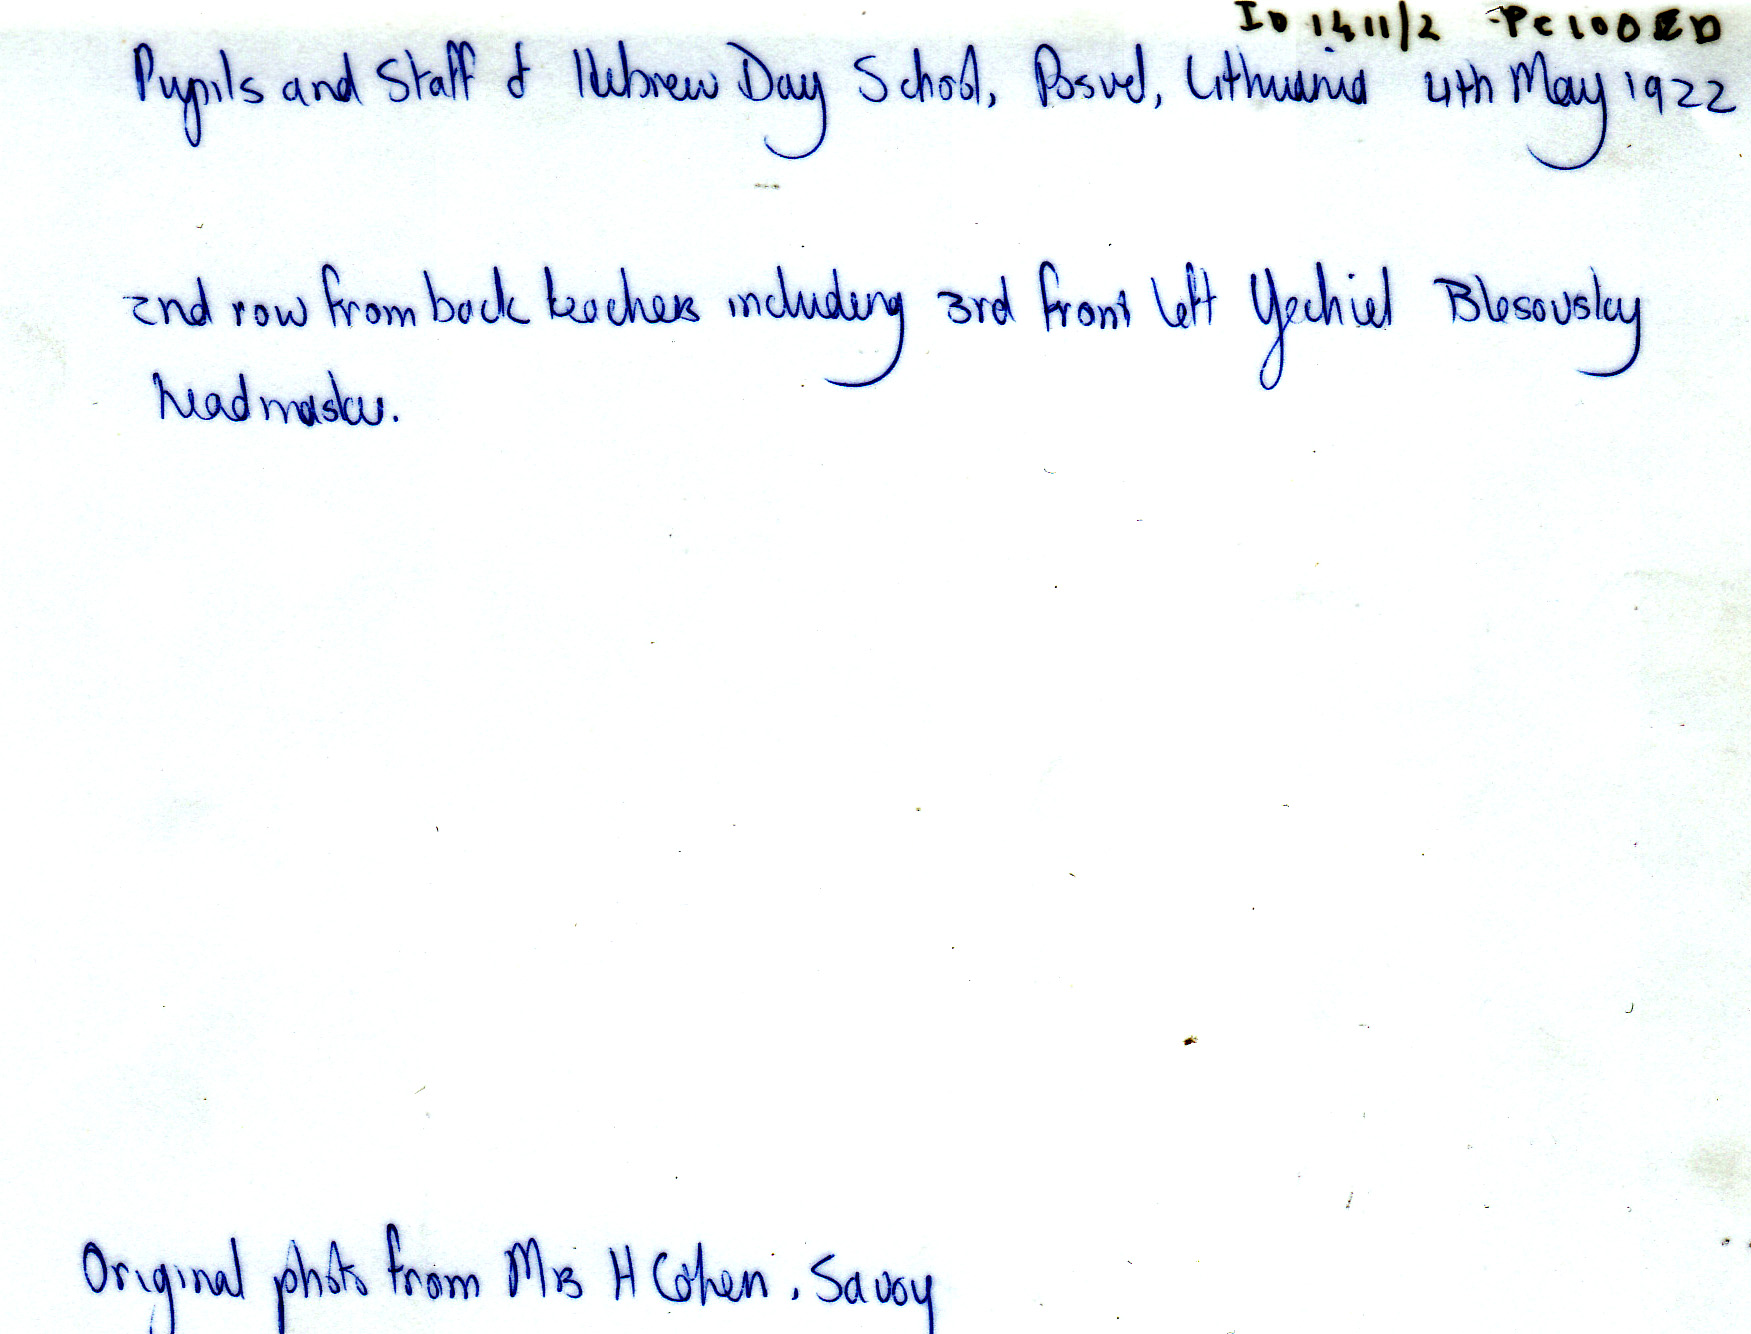 ID 1411/2 -Pc 100 ED
Pupils and Staff of Hebrew Day School, Posvel, Lithuania 4th May 1922
2nd row from back teachers including 3rd from left Yechiel Blesovsky
headmaster.
Original photo from Mrs H Cohen, Savoy